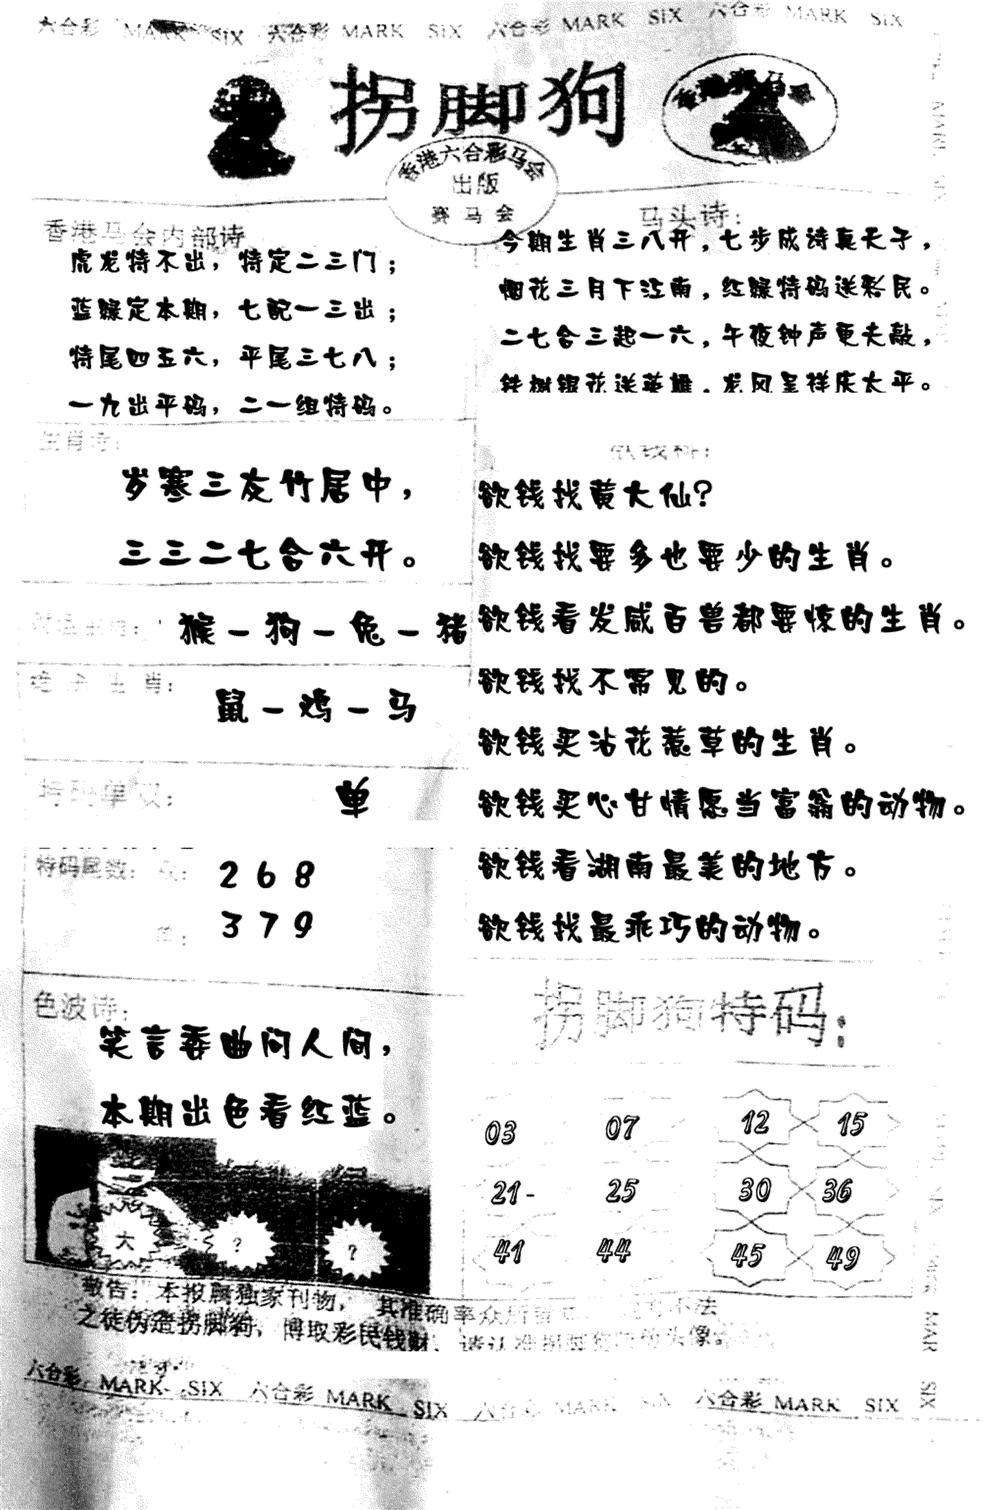 六合彩 MARK SIX 六合彩 MARK SIX 六合彩 MARK SIX 六合彩 MARK SIX
拐脚狗
香港赛马会
香港六合彩马会
出版
赛马会
香港马会内部诗
虎龙特不出，特定二三门；
蓝绿定本期，七配一三出；
特尾四五六，平尾三七八；
一九出平码，二一组特码。
马头诗：
今期生肖三八开，七步成诗真天子，
烟花三月下江南，红绿特码送彩民。
二七合三起一六，午夜钟声更夫敲，
铁树银花送英雄，龙凤呈祥庆太平。
生肖诗：
岁寒三友竹居中，
三三二七合六开。
猴－狗－兔－猪
绝杀生肖：
鼠－鸡－马
特码单双：
单
特码尾数：双：
2 6 8
单：
3 7 9
欲钱找黄大仙？
欲钱找要多也要少的生肖。
欲钱看发威百兽都要惊的生肖。
欲钱找不常见的。
欲钱买沾花惹草的生肖。
欲钱买心甘情愿当富翁的动物。
欲钱看湖南最美的地方。
欲钱找最乖巧的动物。
色波诗：
笑言委曲问人间，
本期出色看红蓝。
大 ？ ？
拐脚狗特码：
03 07 12 15
21- 25 30 36
41 44 45 49
敬告：本报属独家刊物，其准确率众所 不法
之徒伪造拐脚狗，博取彩民钱财，请认准拐脚狗 头像
六合彩 MARK SIX 六合彩 MARK SIX 六合彩 MARK SIX 六合彩 MARK SIX
MARK SIX